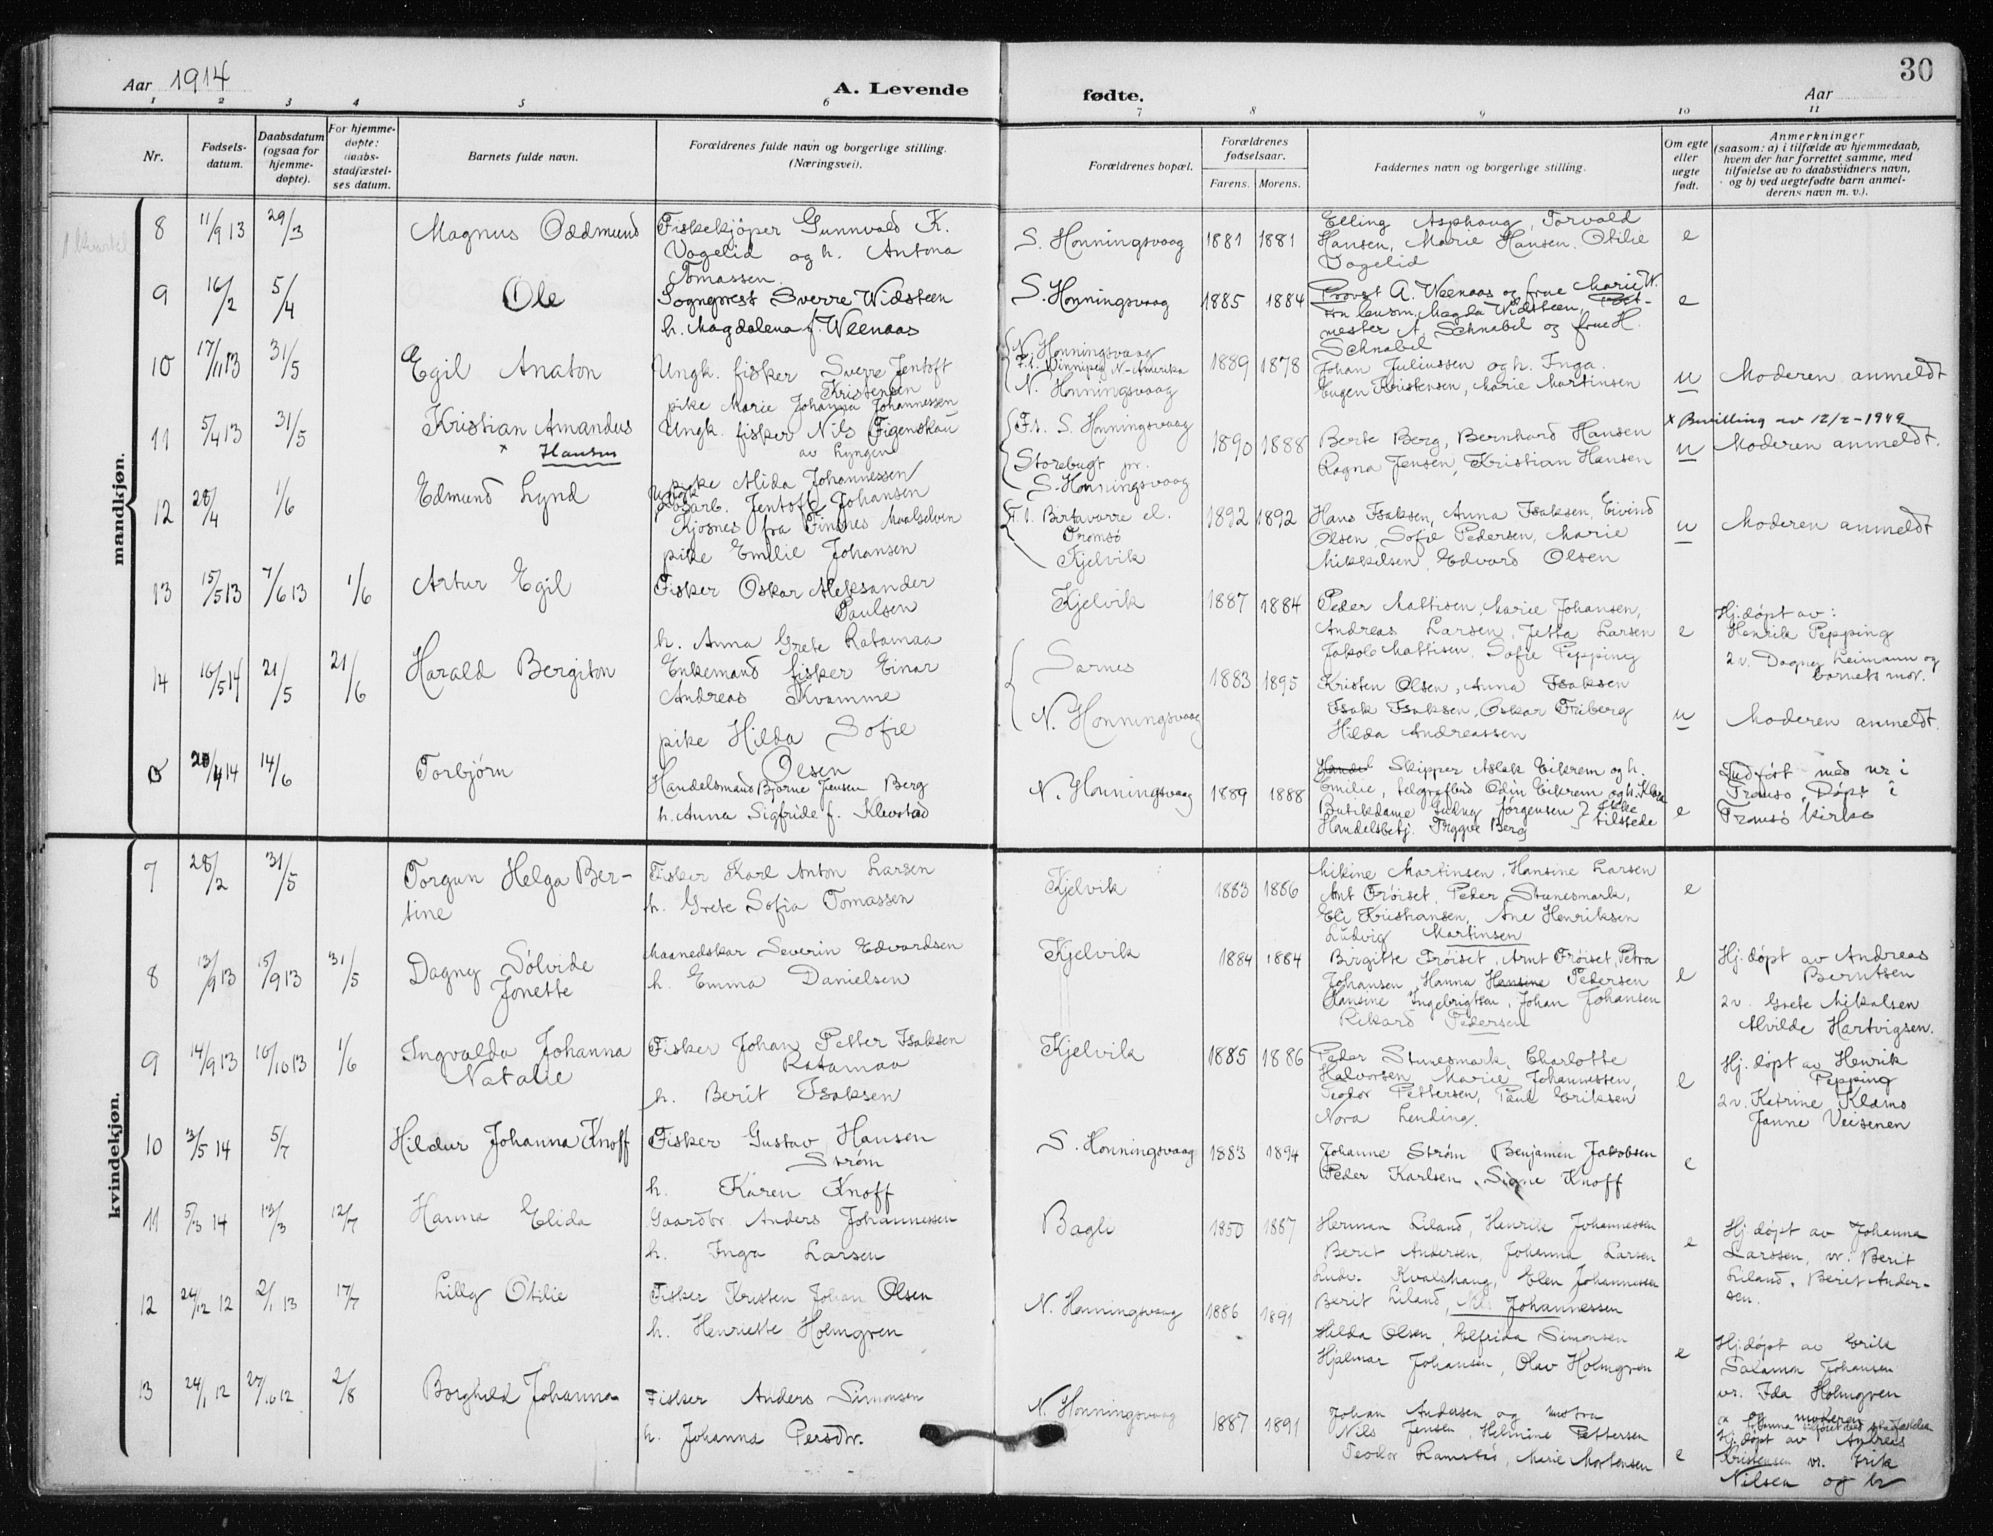 Aar 1914
A. Levende
fødte.
Aar
30
1 2 3 4 5 6 7 8 9 10 11
Nr.
Fødsels-
datum.
Daabsdatum
(ogsaa for
hjemme-
døpte).
For hjemme-
døpte:
daabs-
stadfæstel-
ses datum.
Barnets fulde navn.
Forældrenes fulde navn og borgerlige stilling.
(Næringsvei).
Forældrenes bopæl.
Forældrenes
fødselsaar.
Farens. Morens.
Faddernes navn og borgerlige stilling.
Om egte
eller
uegte
født.
Anmerkninger
(saasom: a) i tilfælde av hjemmedaab,
hvem der har forrettet samme, med
tilføielse av to daabsvidners navn,
og b) ved uegtefødte barn anmel-
derens navn m. v.).
mandkjøn.
8 11/9 13 29/3 Magnus Oddmund
Fiskekjøper Gunnvald K.
Vagelid og h. Antona
Tomassen.
S. Honningsvaag 1881 1881
Elling Asphaug, Torvald
Hansen, Marie Hansen. Otilie
Vagelid
e
9 16/2 5/4 Ole
Sogneprest Sverre Widsteen
h. Magdalena f. Weenaas
S. Honningsvaag 1885 1884
Provst A. Weenaas og frue Marie W.
Magda Widsteen, Post-
mester A. Schnabel og frue H.
Schnabel
e
10 17/11 13 31/5 Egil Anaton
Ungk. fisker Sverre Jentoft
Kristensen
pike Marie Johanna Johannessen
N. Honningsvaag
F.t. Winnipeg N-Amerika
N. Honningsvaag
1889 1878
Johan Juliussen og h. Inga.
Eugen Kristensen, Marie Martinsen
u Moderen anmeldt
11 5/4 13 31/5 Kristian Amandus
x Hansen
Ungk. fisker Nils Figenskau
av Lyngen
pike Alida Johannessen
F.t. S. Honningsvaag
Storebugt pr.
S. Honningsvaag
1890 1888
Berte Berg, Bernhard Hansen
Ragna Jensen, Kristian Hansen
u
x Bevilling av 12/2-1949
Moderen anmeldt.
12 28/4 1/6 Edmund Lynd
Ungk.
Jentoft Johansen
Kjosnes fra Finsnes Maalselven
pike Emilie Johansen
F.t. Birtavarre el.
Tromsø
Kjelvik
1892 1892
Hans Isaksen, Anna Isaksen, Eivind
Olsen, Sofie Pedersen, Marie
Mikkelsen, Edvard Olsen
u Moderen anmeldt
13 15/5 13 7/6 13 1/6 Artur Egil
Fisker Oskar Aleksander
Paulsen
h. Anna Grete Ratamaa
Kjelvik 1887 1884
Peder Mattisen, Marie Johansen,
Andreas Larsen, Jetta Larsen
Jakob Mattisen, Sofie Pepping
e
Hj.døpt av:
Henrik Pepping
2 v. Dagny Leimann og
barnets mor.
14 16/5 14 21/5 21/6 Harald Bergiton
Enkemand fisker Einar
Andreas Kvamme
pike Hilda Sofie
Olsen
Sarnes
N. Honningsvaag
1883 1895
Kristen Olsen, Anna Isaksen
Isak Isaksen, Oskar Friberg
Hilda Andreassen
u Moderen anmeldt.
0 20/4 14 14/6 Torbjørn
Handelsmand Bjarne Jensen Berg
h. Anna Sigfride f. Klevstad
N. Honningsvaag 1889 1888
Skipper Aslak Eikrem og h.
Emilie, telegrafbud Odin Eikrem og h. Klara
Butikdame Gudny Jørgensen } ikke
Handelsbetj. Trygve Berg } tilstede
e
Indført med nr i
Tromsø, Døpt i
Tromsø kirke
kvindekjøn.
7 28/2 31/5 Torgun Helga Ber-
tine
Fisker Karl Anton Larsen
h. Grete Sofia Tomassen
Kjelvik 1883 1886
Mikine Martinsen, Hansine Larsen
Ant Frøiset, Peder Stunesmark,
Eli Kristiansen, Ane Henriksen
Ludvig Martinsen
e
8 13/9 13 15/9 13 31/5 Dagny Sølvide
Jonette
Maanedskar Severin Edvardsen
h. Emma Danielsen
Kjelvik 1884 1884
Birgitte Frøiset, Arnt Frøiset, Petra
Johansen, Hanna Hansine Pedersen
Hansine Ingebrigtsen, Johan Johansen
Rikard Pedersen
e
Hj.døpt av Andreas
Berntsen
2 v. Grete Mikalsen
Alvilde Hartvigsen.
9 14/9 13 10/10 13 1/6 Ingvalda Johanna
Natalie
Fisker Johan Petter Isaksen
Ratamaa
h. Berit Isaksen
Kjelvik 1885 1886
Peder Stunesmark, Charlotte
Halvorsen, Marie Johannessen,
Teodor Pettersen, Paul Eriksen
Nora Lending.
e
Hj.døpt av Henrik
Pepping
2 v. Katrine Klamo
Janne Veisenen
10 3/5 14 5/7 Hildur Johanna Knoff
Fisker Gustav Hansen
Strøm
h. Karen Knoff
S. Honningsvaag 1883 1894
Johanne Strøm Benjamin Jakobsen
Peder Karlsen, Signe Knoff
e
11 5/3 14 13/3 12/7 Hanna Elida
Gaardbr. Anders Johannessen
h. Inga Larsen
Bagli 1850 1887
Herman Liland, Henrik Johannessen
Berit Andersen, Johanna Larsen
Ludv. Kvalshaug, Elen Johannessen
Berit Liland, Nils Johannessen
e
Hj.døpt av Johanna
Larssen, vr. Berit
Liland, Berit Ander-
sen.
12 24/12 12 2/1 13 17/7 Lilly Otilie
Fisker Kristen Johan Olsen
h. Henriette Holmgren
N. Honningsvaag 1886 1891
Hilda Olsen, Elfrida Simonsen
Hjalmar Johansen, Olav Holmgren
e
Hj.døpt av Erik
Salamon Johansen
vr. Ida Holmgren
og moderen
13 24/1 12 27/10 12 2/8 Borghild Johanna
Fisker Anders Simonsen
h. Johanna Persdtr.
N. Honningsvaag 1887 1891
Johan Andersen og hustru
Nils Jensen, Helmine Pettersen
Teodor Ramstad, Marie Mortensen
e
Hj.døpt av Andreas
Kristensen vr. Erik
Nilsen og br